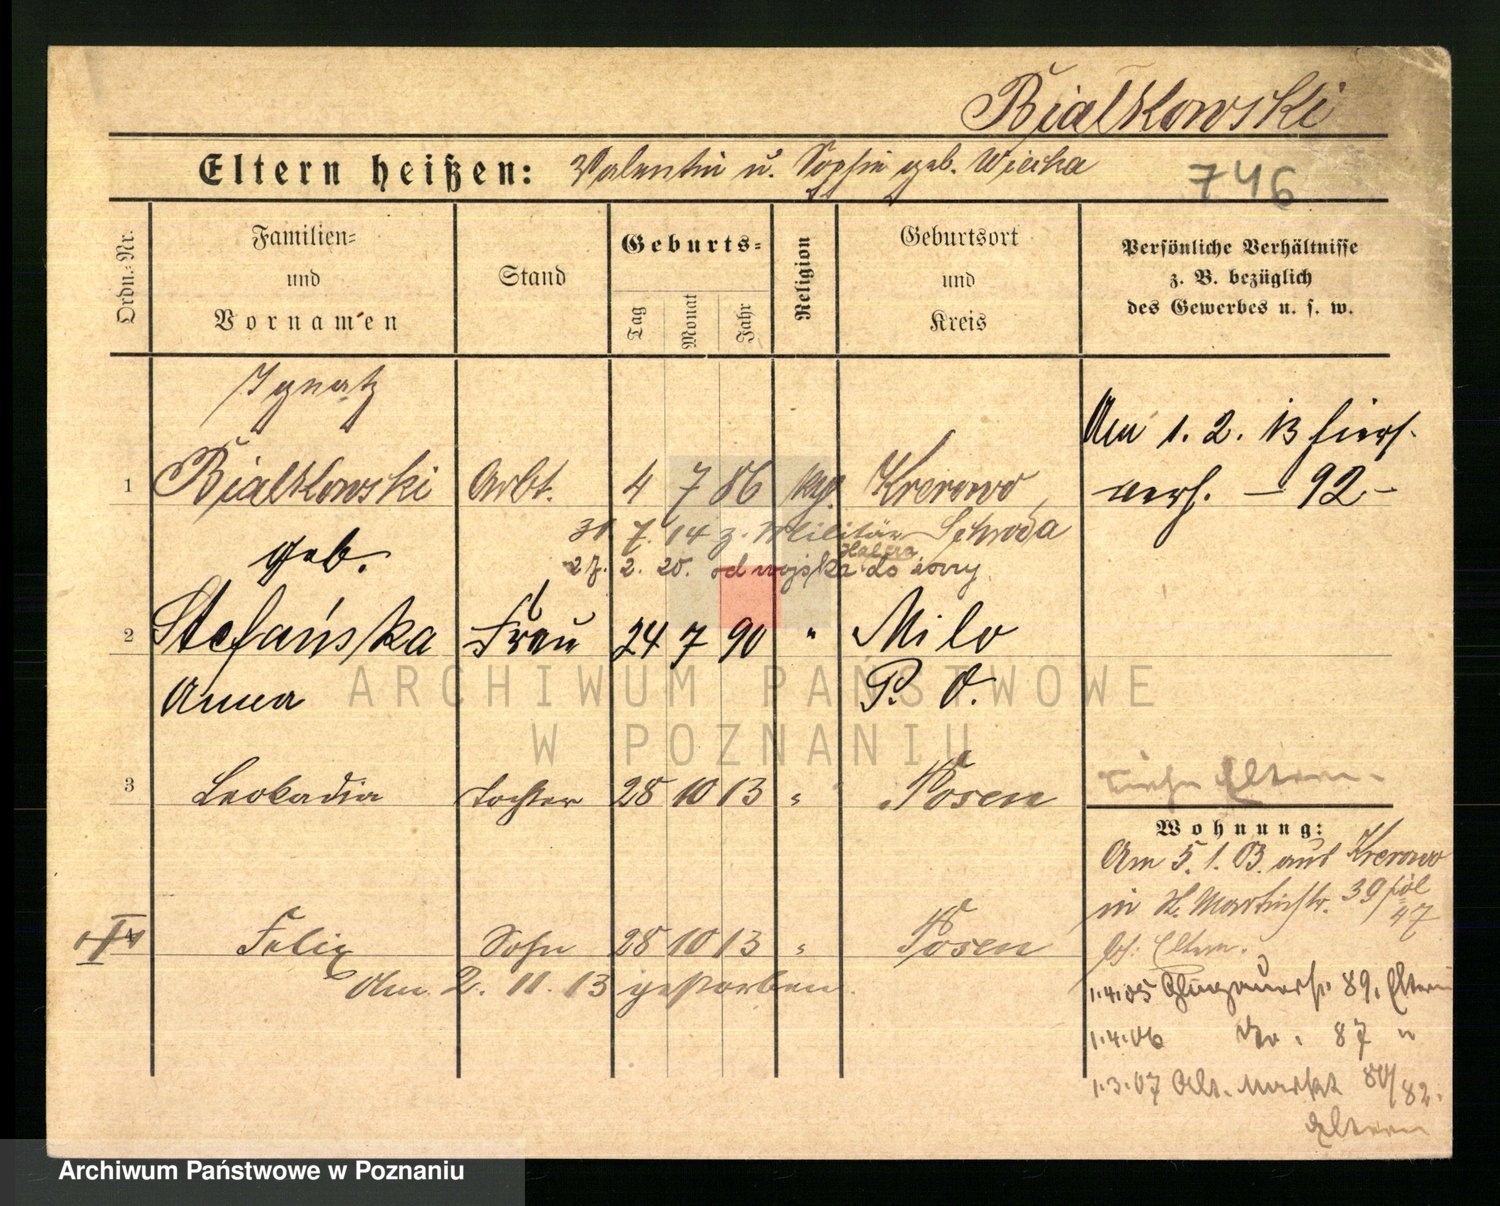 Bialkowski
Eltern heißen: Valentin u. Sophie geb. Wiecka
746
Ordn.-Nr.
Familien-
und
Vornamen
Stand
Geburts-
Tag
Monat
Jahr
Religion
Geburtsort
und
Kreis
Persönliche Verhältnisse
z. B. bezüglich
des Gewerbes u. s. w.
Ignatz
1 Bialkowski Arbt. 4 7 86 Krerowo
Schroda
31. 7. 14 z. Militär
27. 2. 20. od wojska do żony
geb.
2 Stefańska Frau 24 7 90 " Milo
Anna P. O.
3 Leokadia Tochter 28 10 13 " Posen
4 Felix Sohn 28 10 13 " Posen
Am 2. 11. 13 gestorben.
Am 1. 2. 13 hiers.
verh. – 92 –
siehe Eltern.
Wohnung:
Am 5. 1. 03. aus Krerowo
in St. Martinstr. 39
47
bei Eltern.
1.4.05 Glogauerstr. 89. Eltern
1.4.06 do. 87 "
1.3.07 Alt. Markt 80/82.
Eltern
ARCHIWUM PAŃSTWOWE
W POZNANIU
Archiwum Państwowe w Poznaniu